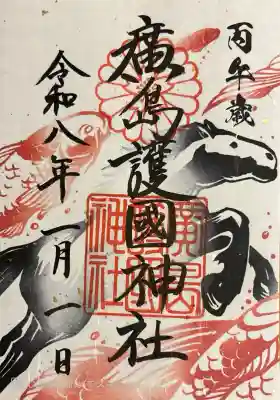 丙午歳
廣島護國神社
廣島
神社
令和八年一月一日